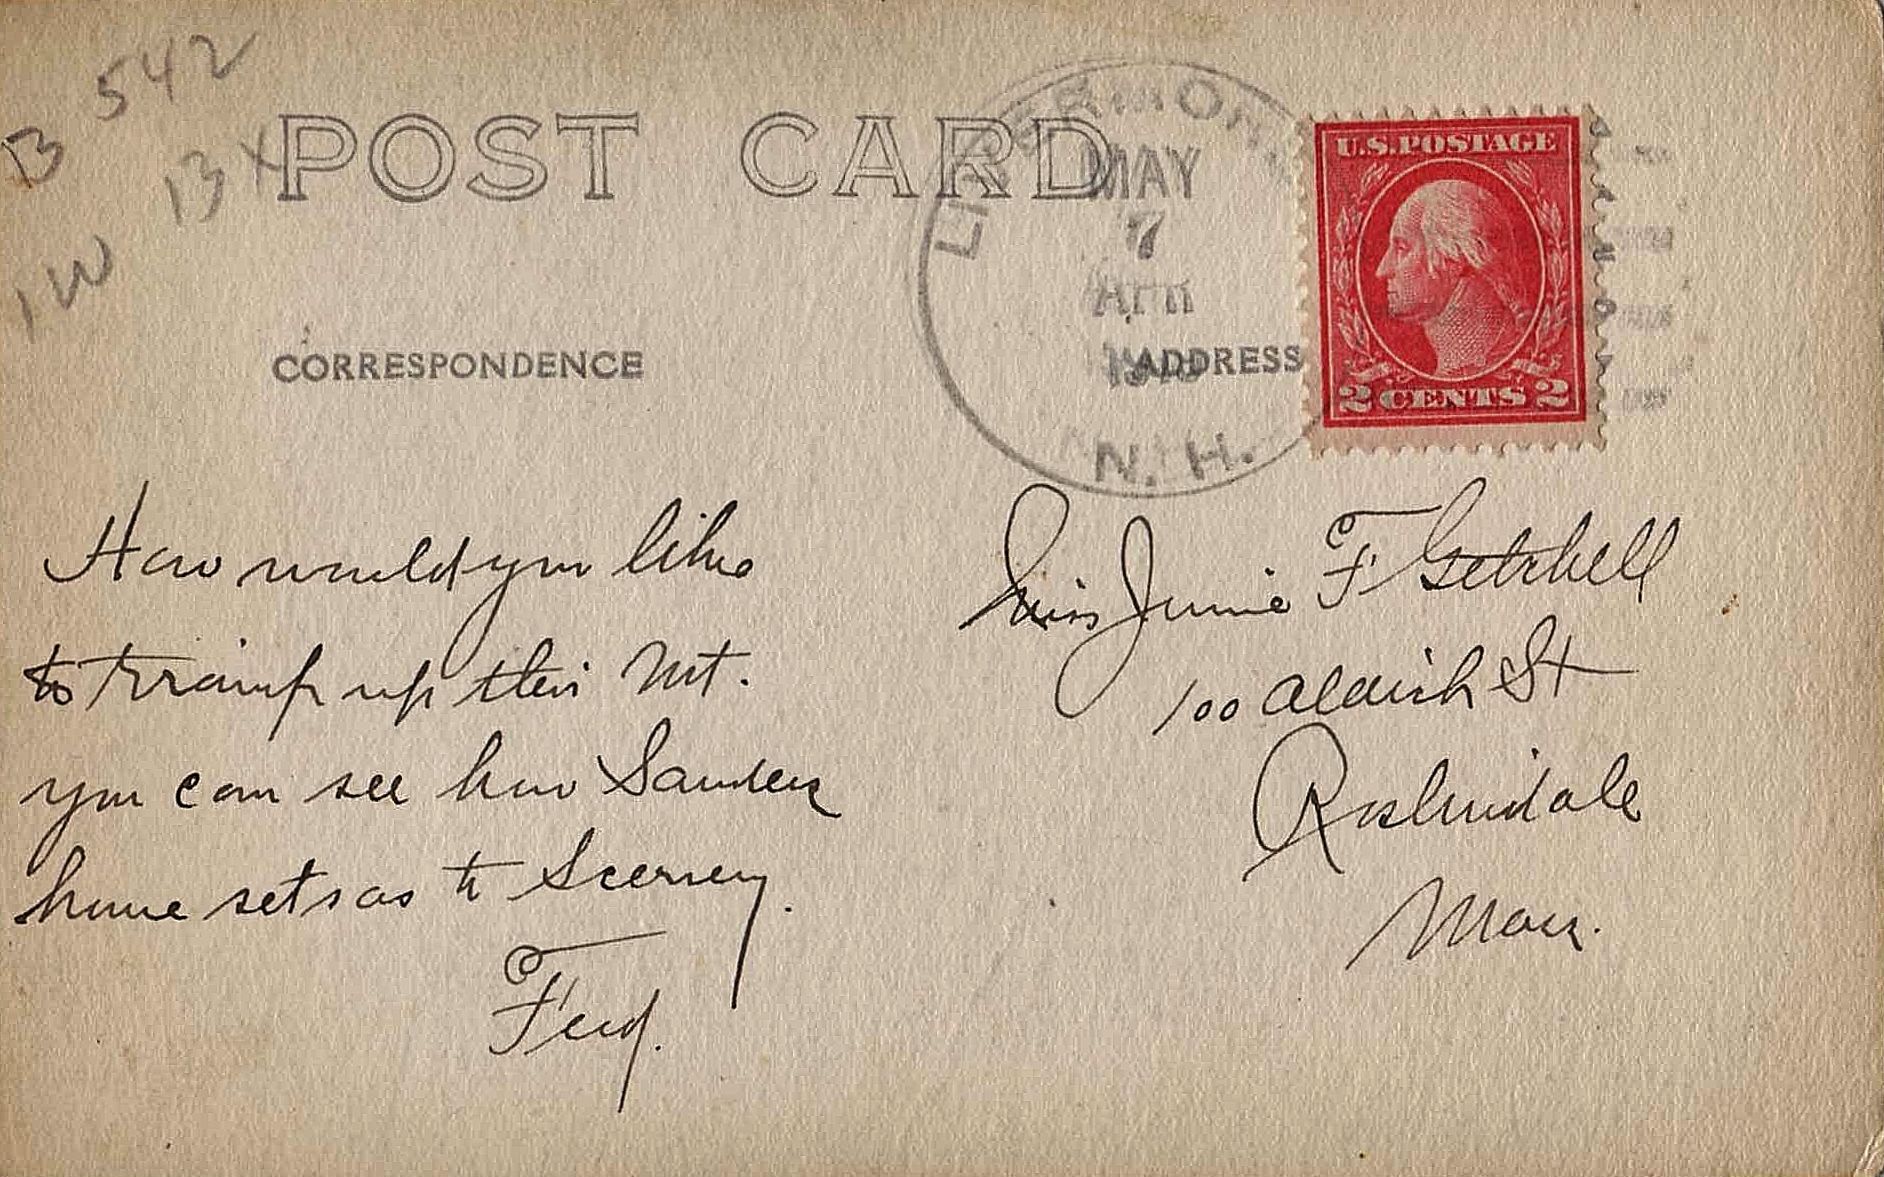 B 542
13 X
1W
POST CARD
LIVERMORE
MAY
7
N.H.
U.S. POSTAGE
2 CENTS 2
CORRESPONDENCE
ADDRESS
How would you like
to tramp up this Mt.
you can see how Sanders
home sets as to Scenery.
Ferd.
Miss Junie F Getchell
100 Aldrich St
Roslindale
Mass.